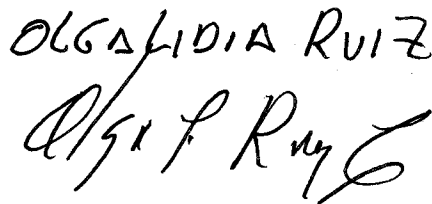 OLGA LIDIA RUIZ
Olga L. Ruiz